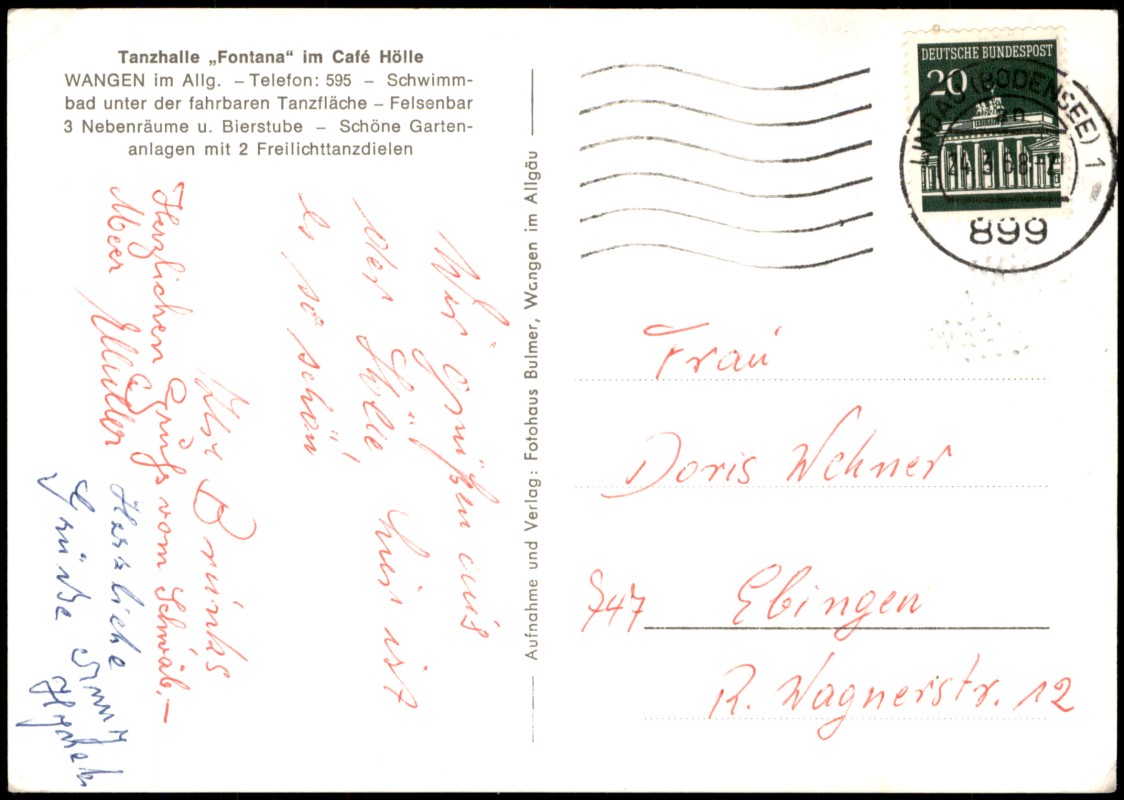 Tanzhalle „Fontana“ im Café Hölle
WANGEN im Allg. – Telefon: 595 – Schwimm-
bad unter der fahrbaren Tanzfläche – Felsenbar
3 Nebenräume u. Bierstube – Schöne Garten-
anlagen mit 2 Freilichttanzdielen
Wir grüßen aus
der Hölle, hier ist
es so schön
Ihr Brinks
Herzlichen Gruß vom Schwäb.–
Meer
Herzliche
Grüße
Aufnahme und Verlag: Fotohaus Bulmer, Wangen im Allgäu
DEUTSCHE BUNDESPOST
20
LINDAU (BODENSEE) 1
24.3.68
899
Frau
Doris Wehner
747 Ebingen
R. Wagnerstr. 12